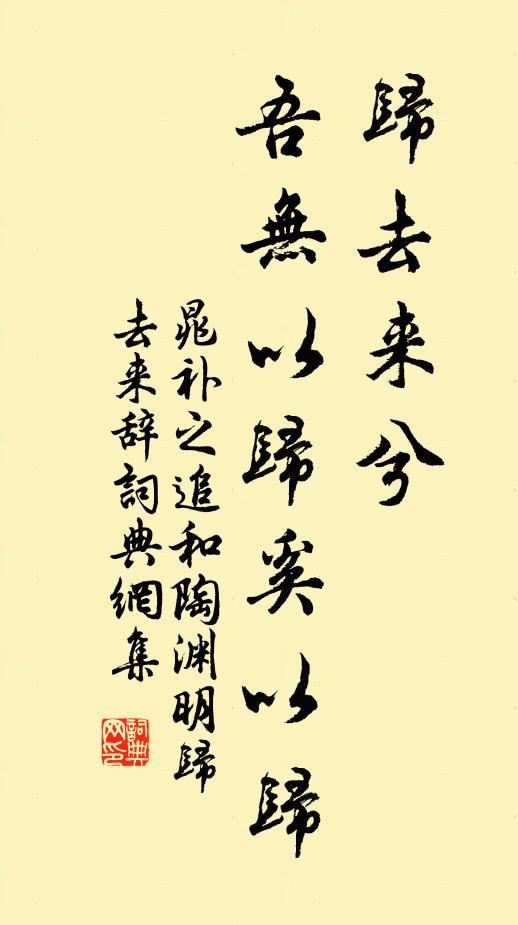 歸去来兮
吾無以歸奚以歸
晁补之追和陶渊明歸
去来辞詞典網集
詞典網印